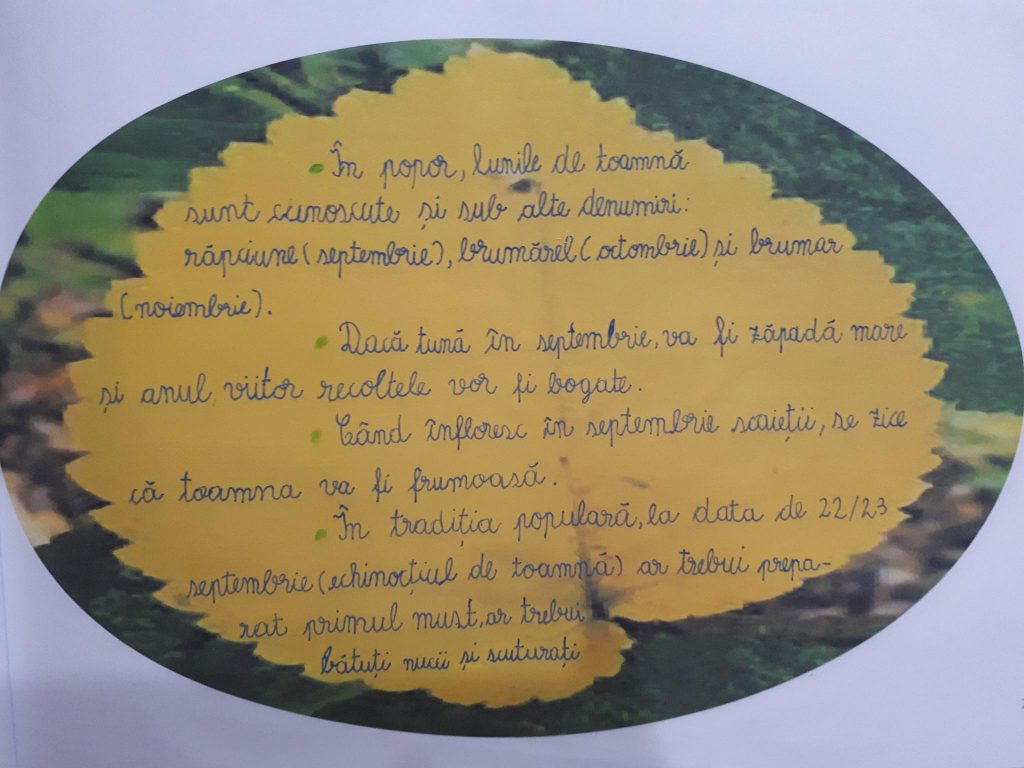 În popor, lunile de toamnă
sunt cunoscute și sub alte denumiri:
răpciune (septembrie), brumărel (octombrie) și brumar
(noiembrie).
Dacă tună în septembrie, va fi zăpadă mare
și anul viitor recoltele vor fi bogate.
Când înfloresc în septembrie scaieții, se zice
că toamna va fi frumoasă.
În tradiția populară, la data de 22/23
septembrie (echinocțiul de toamnă) ar trebui prepa-
rat primul must, ar trebui
bătuți nucii și scuturați